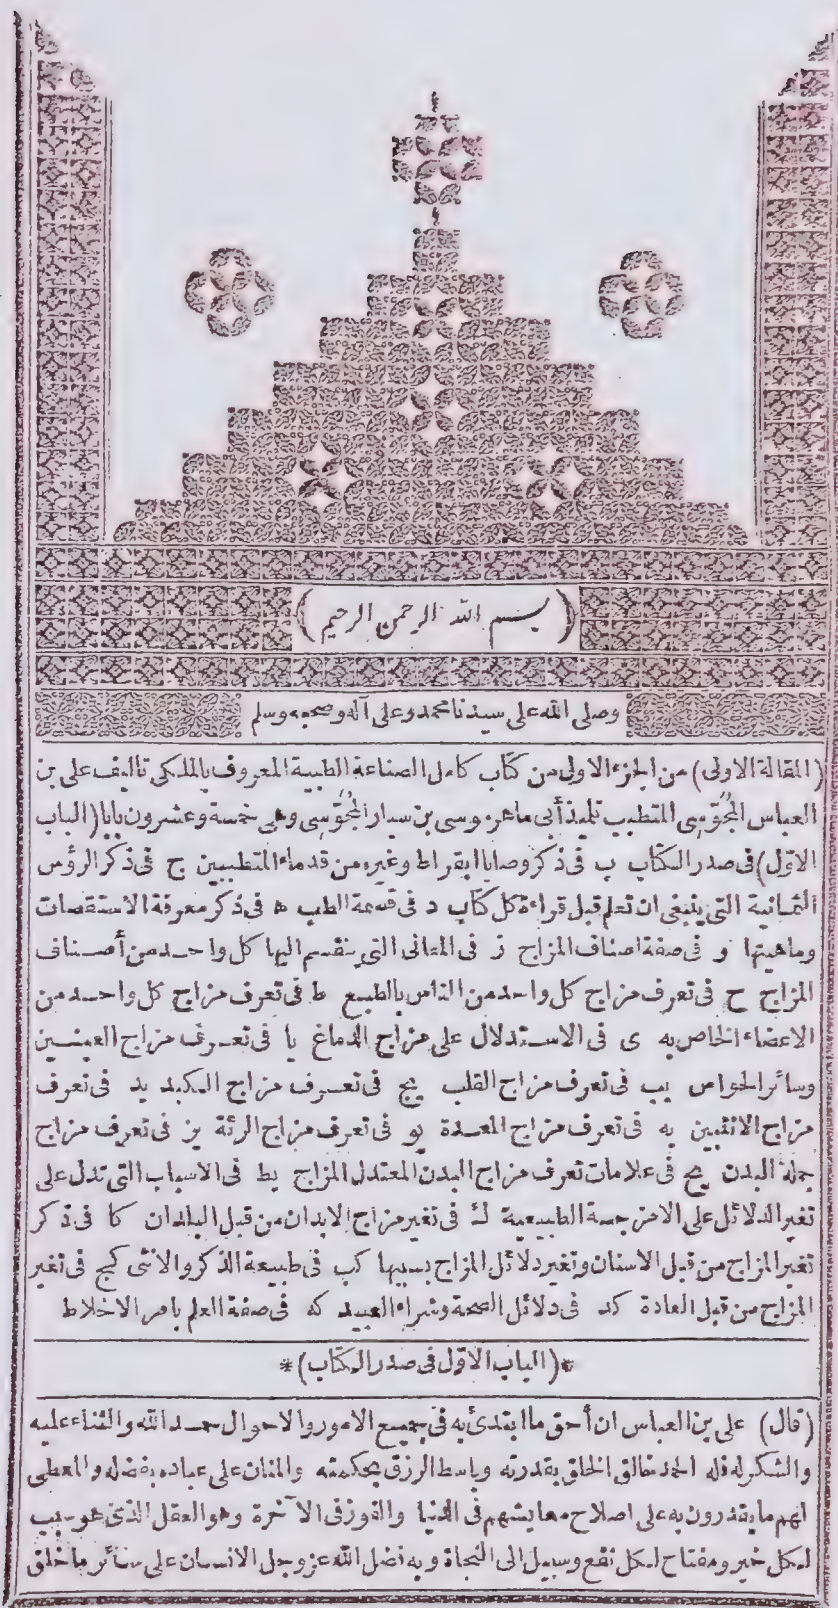 (بسم الله الرحمن الرحيم)
وصلى الله على سيدنا محمد وعلى آله وصحبه وسلم
(المقالة الاولى) من الجزء الاول من كتاب كامل الصناعة الطبية المعروف بالملكى تاليف على بن
العباس المجوسى المتطبب تلميذ أبى ماهر موسى بن سيار المجوسى وهى خمسة وعشرون بابا (الباب
الاول) فى صدر الكتاب ب فى ذكر وصايا ابقراط وغيره من قدماء المتطببين ج فى ذكر الرؤس
الثمانية التى ينبغى ان تعلم قبل قراءة كل كتاب د فى قسمة الطب ه فى ذكر معرفة الاستقصات
وماهيتها و فى صفة اصناف المزاج ز فى المعانى التى ينقسم اليها كل واحد من أصناف
المزاج ح فى تعرف مزاج كل واحد من الناس بالطبع ط فى تعرف مزاج كل واحد من
الاعضاء الخاص به ى فى الاستدلال على مزاج الدماغ يا فى تعرف مزاج العينين
وسائر الحواس يب فى تعرف مزاج القلب يج فى تعرف مزاج الكبد يد فى تعرف
مزاج الانثيين يه فى تعرف مزاج المعدة يو فى تعرف مزاج الرئة يز فى تعرف مزاج
جملة البدن يح فى علامات تعرف مزاج البدن المعتدل المزاج يط فى الاسباب التى تدل على
تغير الدلائل على الامزجة الطبيعية ك فى تغير مزاج الابدان من قبل البلدان كا فى ذكر
تغير المزاج من قبل الاسنان وتغير دلائل المزاج بسببها كب فى طبيعة الذكر والانثى كج فى تغير
المزاج من قبل العادة كد فى دلائل الصحة وشراء العبيد كه فى صفة العلم بامر الاخلاط
*(الباب الاول فى صدر الكتاب)*
(قال) على بن العباس ان أحق ما ابتدئ به فى جميع الامور والاحوال حمد الله والثناء عليه
والشكر له فله الحمد خالق الخلق بقدرته وباسط الرزق بحكمته والمنان على عباده بفضله والمعطى
لهم ما يقدرون به على اصلاح معايشهم فى الدنيا والفوز فى الآخرة وهو العقل الذى هو سبب
لكل خير ومفتاح لكل نفع وسبيل الى النجاة وبه فضل الله عز وجل الانسان على سائر ما خلق